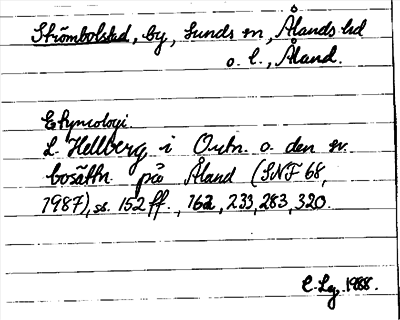 Strömbolstad, by, Sunds sn, Ålands hd
o. l., Åland.
Etymologi.
L. Hellberg i Ortn. o. den sv.
bosättn. på Åland (SNF 68,
1987), ss. 152 ff., 162, 233, 283, 320.
1988.